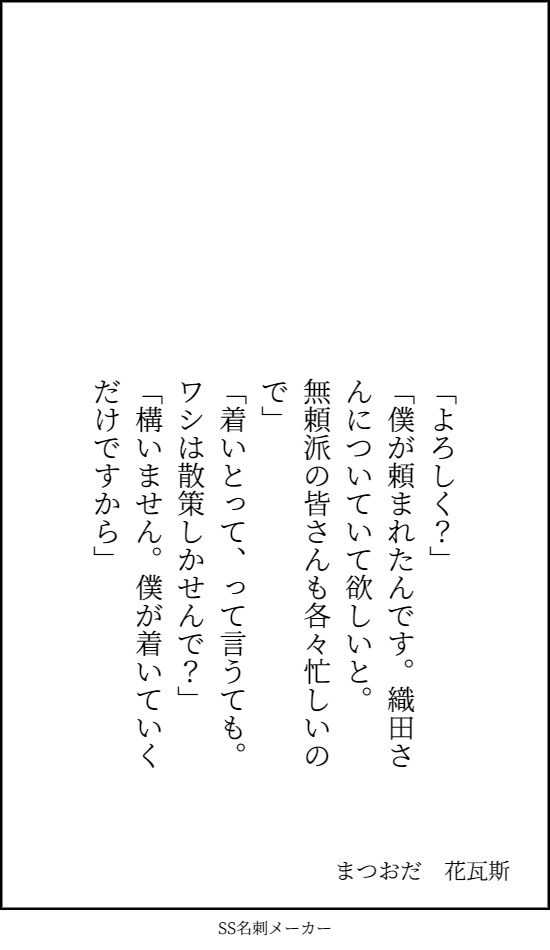 「よろしく？」
「僕が頼まれたんです。織田さ
んについていて欲しいと。
無頼派の皆さんも各々忙しいの
で」
「着いとって、って言うても。
ワシは散策しかせんで？」
「構いません。僕が着いていく
だけですから」
まつおだ　花瓦斯
SS名刺メーカー